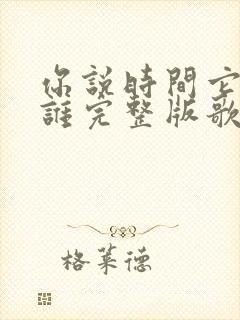 你說時間它
誰完整版歌
格萊德